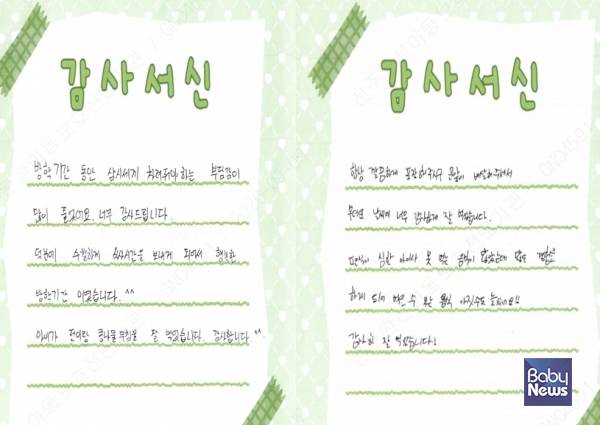 감사서신
방학기간 동안 삼시세끼 차려줘야하는 부담감이
많이 줄었어요. 너무 감사드립니다.
덕분에 수월하게 식사시간을 보내게 되어서 행복한
방학기간 이였습니다. ^^
아이가 잔이랑 콩나물무침을 잘 먹었습니다. 감사합니다. ^^
감사서신
항상 깔끔하게 포장해주시구 문앞에 배송해주셔서
무더운 날씨에 너무 감사하게 잘 먹었습니다.
편식이 심한 아이라 못 먹는 음식이 많았는데 많은
하게 되어 먹을 수 있는 음식 가짓수도 늘었어요!!
감사히 잘 먹었습니다!
Baby
News